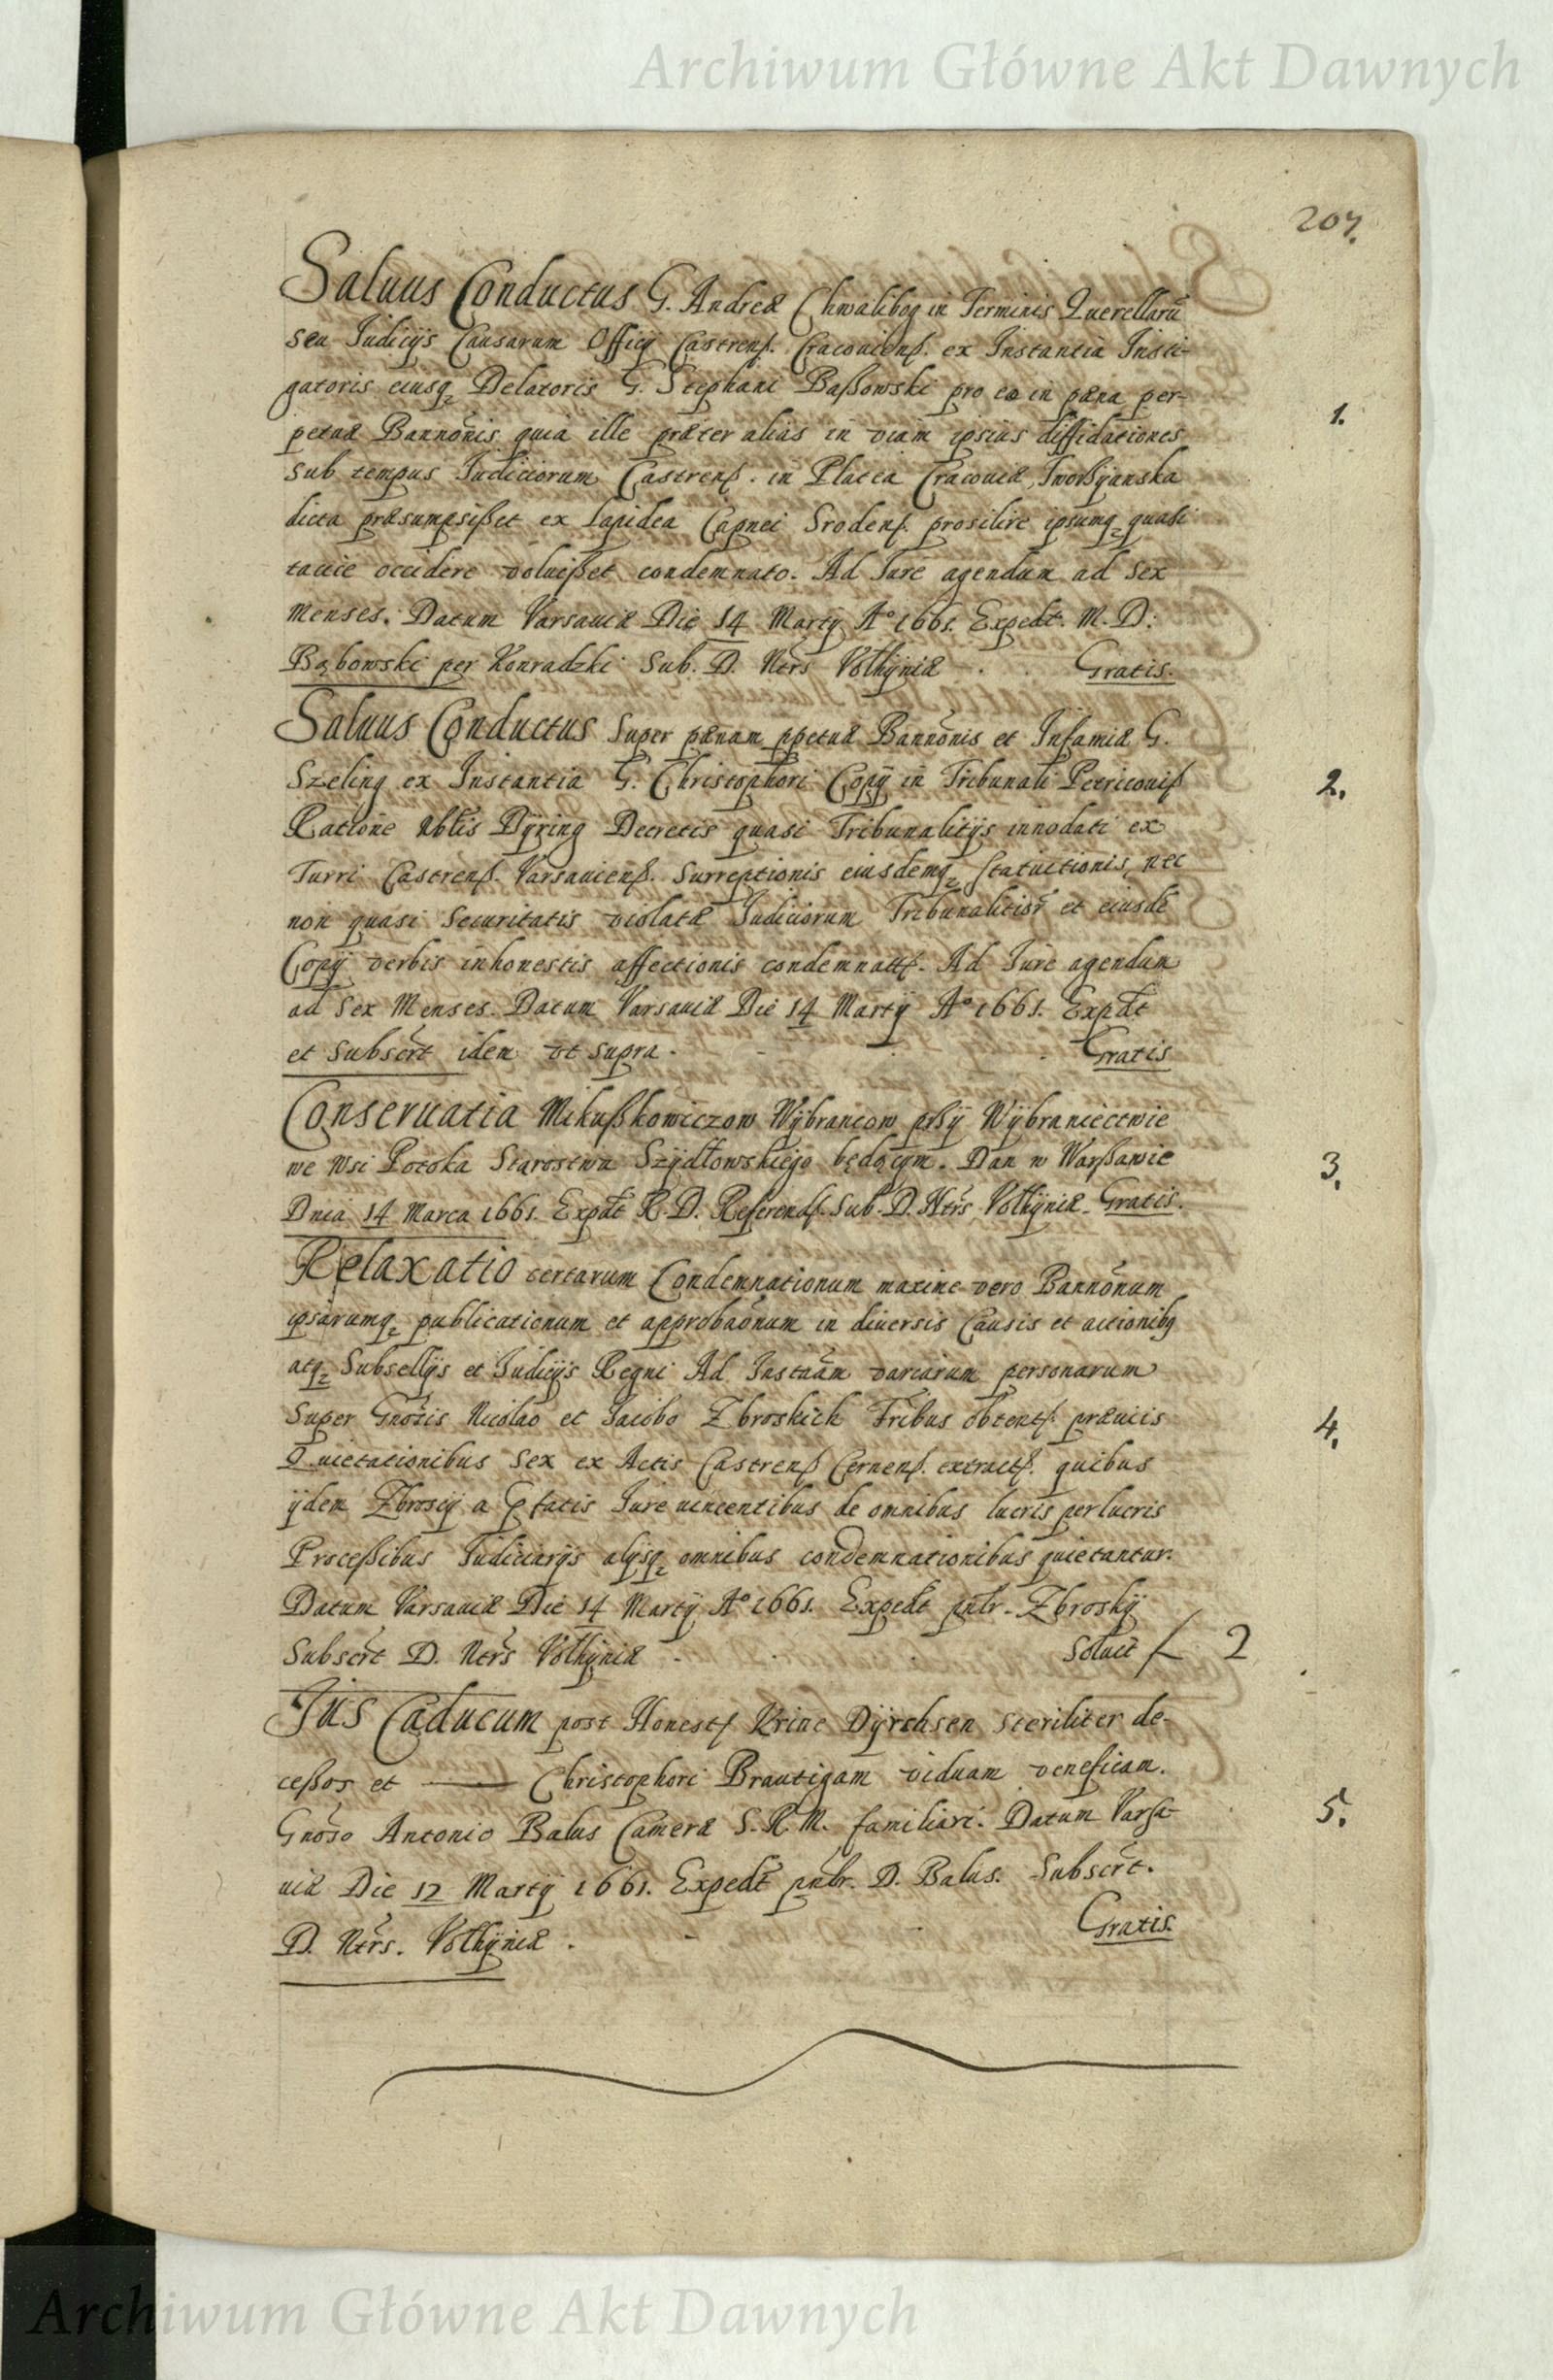 Archiwum Główne Akt Dawnych
207.
Saluus Conductus G. Andreæ Chwalibog in Terminis Querellarū
seu Iudicijs Causarum Officij Castrenß. Cracouienß. ex Instantia Insti-
gatoris eiusq₂ Delatoris G. Stephani Baßowski pro eo in pæna per-
petuæ Bannōnis quia ille præter alias in viam ipsius diffidationes
1.
sub tempus Iudiciorum Castrenß. in Platea Cracouiæ,
dicta præsumpsißet ex lapidea Srodenß. prosilire ipsumq₂ quasi
occidere voluißet condemnato. Ad Iure agendum ad Sex
Menses. Datum Varsauiæ Die 14 Martij A° 1661. Expedt. M. D.
Bąbowski per Konradzki Sub. D. Ntrs Volhyniæ. Gratis.
Saluus Conductus Super pænam ppetuæ Bannōnis et Infamiæ G.
Szeling ex Instantia G. Christophori Copij in Tribunali Petricouiß
2.
Ratione Nblis Dijring Decretis quasi Tribunalitijs innodati ex
Turri Castrenß. Varsauienß. Surreptionis eiusdemq₂ statuitionis, nec
non quasi Securitatis violatæ Iudiciorum Tribunalitior̄ et eiusdē
Copij verbis inhonestis affectionis condemnatß. Ad Iure agendum
ad Sex Menses. Datum Varsauiæ Die 14 Martij A° 1661. Expdt
et Subscrt idem vt supra. Gratis
Conseruatia Mikußkowiczow Wÿbrancow prßÿ Wÿbraniectwie
we Wsi Potoka Starostwa Szÿdłowskiego będącÿm. Dan w Warßawie
3.
Dnia 14 Marca 1661. Expdt R. D. Referendß. Sub. D. Ntrs Volhÿniæ. Gratis.
Relaxatio certarum Condemnationum maxime vero Bannōnum
ipsarumq₂ publicationum et approbaōnum in diuersis Causis et actionibq
atq₂ Subsellijs et Iudicijs Regni Ad Instnām variarum personarum
Super Gnōsis Nicolao et Iacobo Zbroskich Frībus obtentß. præuiis
4.
Quietationibus Sex ex Actis Castrenß Cernenß. extractß. quibus
ijdem Zbroscij a Pfatis Iure vincentibus de omnibus lucris perlucris
Proceßibus Iudiciarijs alijsq₂ omnibus condemnationibus quietantur.
Datum Varsauiæ Die 14 Martij A° 1661. Expedt pnbr. Zbroskÿ
Subscrt D. Ntrs Volhÿniæ. Soluit f 2
Ius Caducum post Honestß Dÿrchsen steriliter de-
ceßos et —— Christophori Brautigam viduam veneficam.
Gnōso Antonio Balus Cameræ S. R. M. familiari. Datum Varsa-
5.
uiæ Die 12 Martij 1661. Expedt pnbr. D. Balus. Subscrt.
D. Ntrs. Volhÿniæ. Gratis.
Archiwum Główne Akt Dawnych